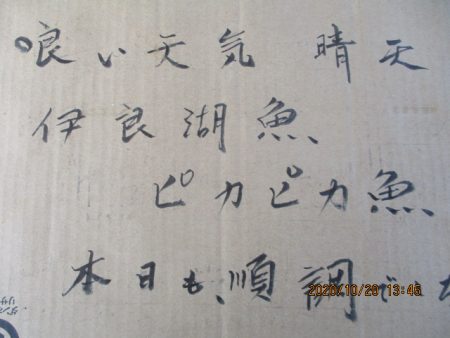 良い天気 晴天
伊良湖魚、
ピカピカ魚、
本日も、順調で
2020/10/20 13:46